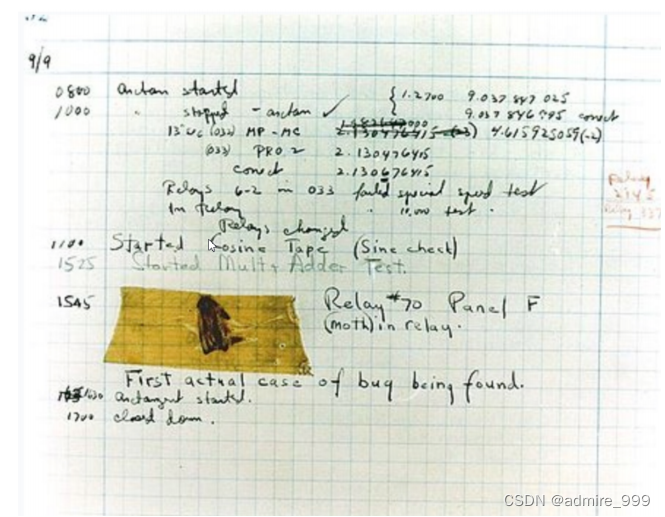 9/9
0800 arctan started { 1.2700 9.037 847 025
1000 " stopped - arctan ✓ { 9.037 846 995 correct
13" uc (032) MP - MC 2.130476415 (-3) 4.615925059(-2)
(033) PRO. 2 2.130476415
correct 2.130676415
Relays 6-2 in 033 failed special speed test
In Relay " 11.000 test .
Relays changed
Relay
1100 Started Cosine Tape (Sine check)
1525 Started Mult + Adder Test.
1545 Relay #70 Panel F
(moth) in relay.
First actual case of bug being found.
1630 arctangent started.
1700 closed down .
CSDN @admire_999